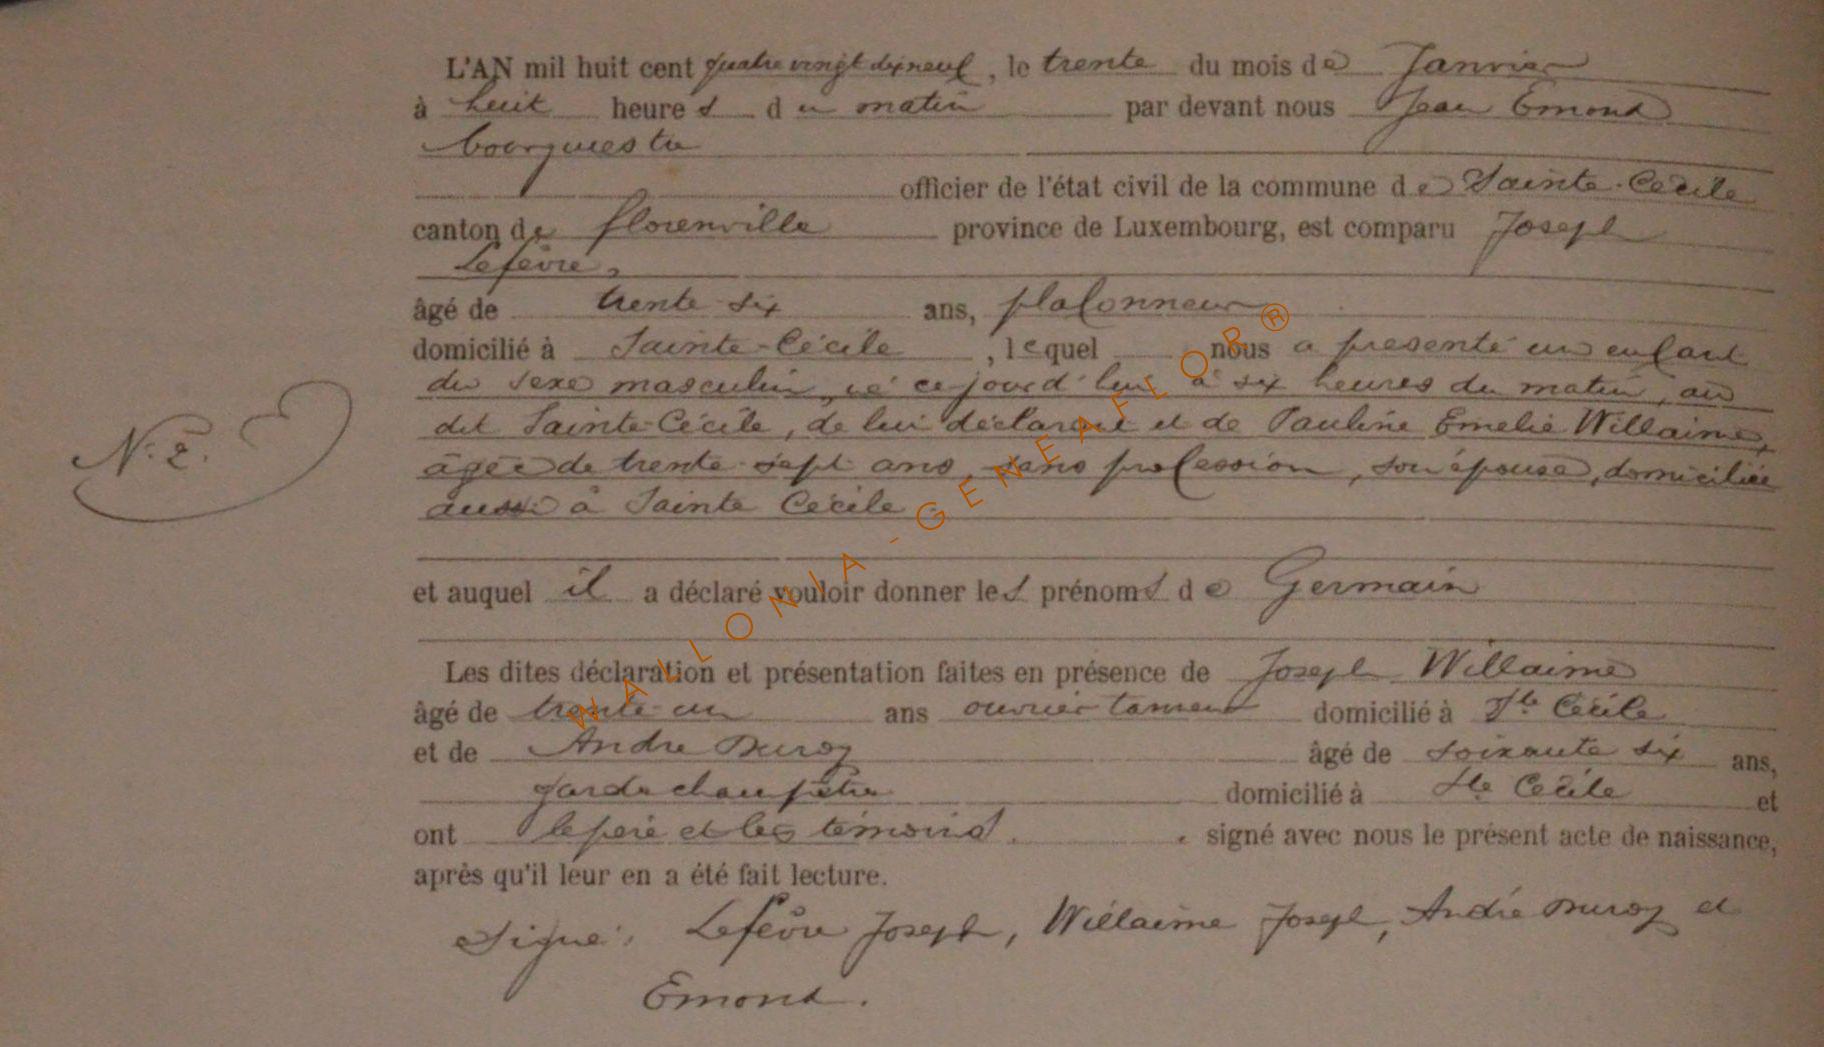 L'AN mil huit cent quatre vingt dix neuf, le trente du mois de Janvier
à huit heures du matin par devant nous Jean Emond
bourgmestre
officier de l'état civil de la commune de Sainte-Cécile
canton de florenville province de Luxembourg, est comparu Joseph
Lefèvre,
âgé de trente-six ans, plafonneur
domicilié à Sainte-Cécile, lequel nous a présenté un enfant
du sexe masculin, né ce jourd'hui à six heures du matin, au
N. 2.
dit Sainte-Cécile, de lui déclarant et de Pauline Emelie Willaime,
âgée de trente-sept ans, sans profession, son épouse, domiciliée
aussi à Sainte Cécile.
et auquel il a déclaré vouloir donner les prénoms de Germain
Les dites déclaration et présentation faites en présence de Joseph Willaime
âgé de trente-un ans ouvrier tanneur domicilié à Ste Cécile
et de André âgé de soixante six ans,
garde champêtre domicilié à Ste Cécile et
ont le père et les témoins. signé avec nous le présent acte de naissance,
après qu'il leur en a été fait lecture.
Signé: Lefèvre Joseph, Willaime Joseph, André et
Emond.
WALLONIA-GENEAFLOR®